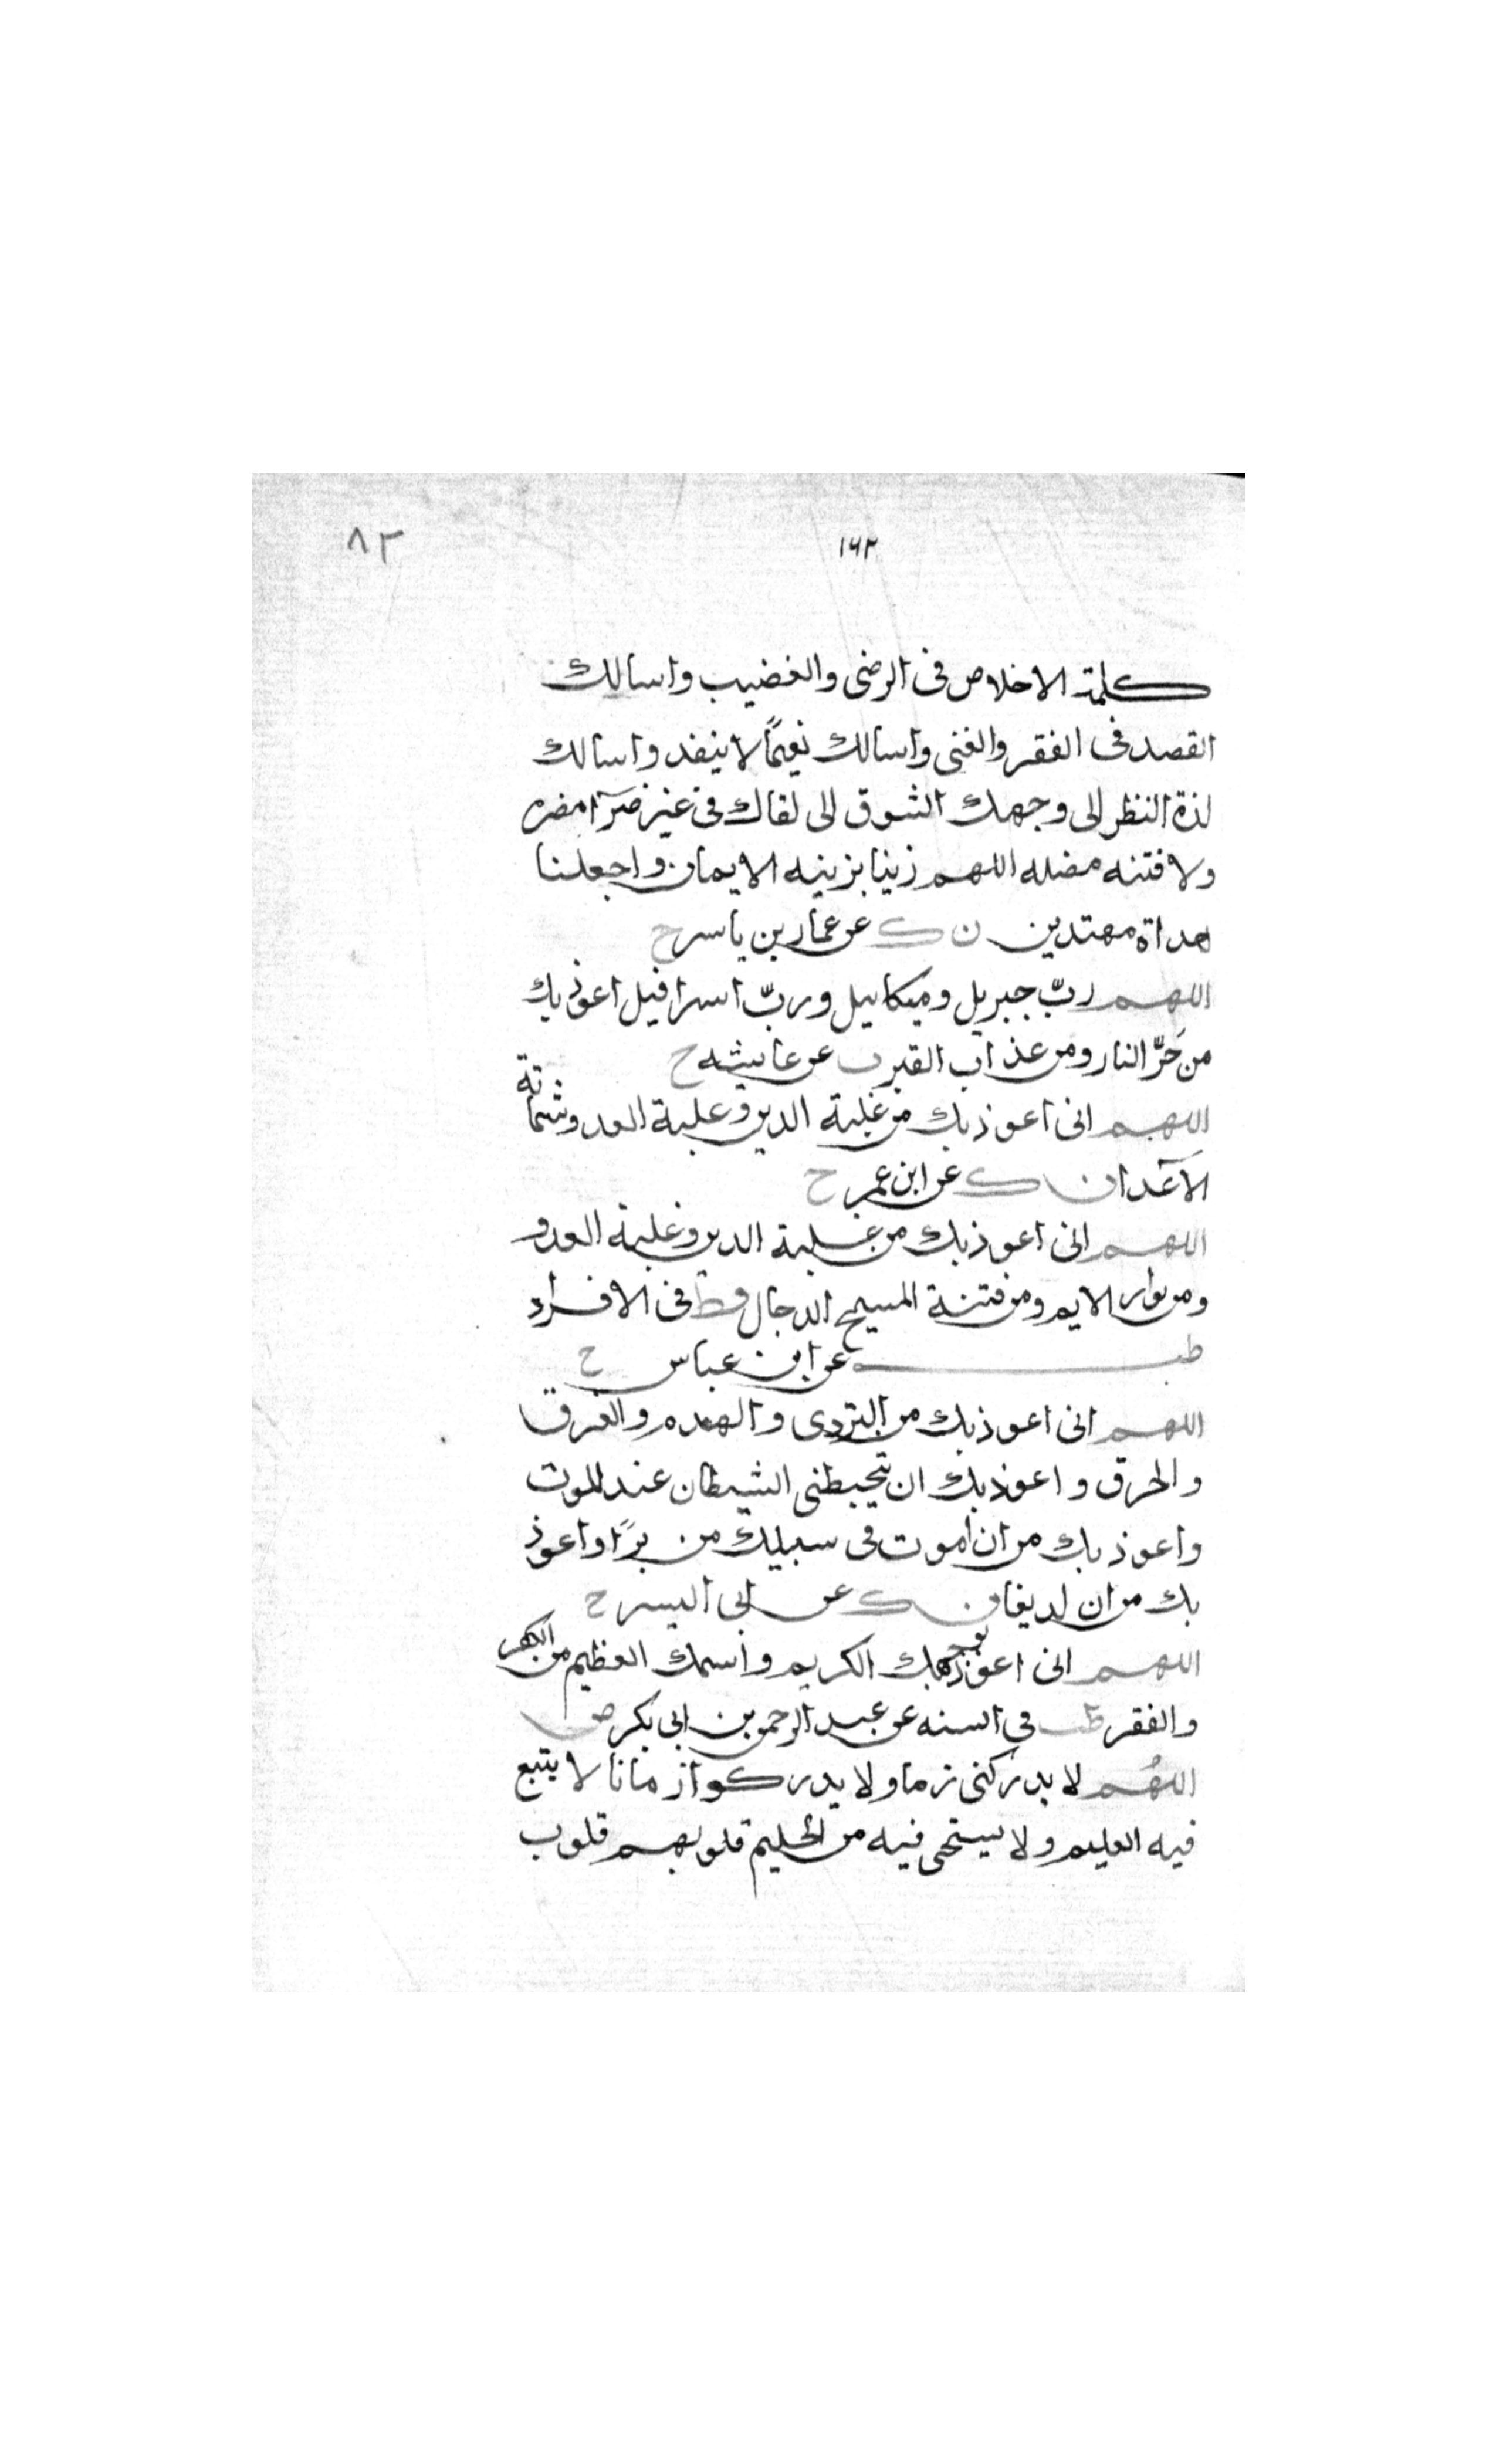 ١٦٢
٨٢
كلمة الاخلاص فى الرضى والغضيب واسالك
القصد فى الفقر والغنى واسالك نعيمًا لا ينفد واسالك
لذة النظر الى وجهك الشوق الى لقاك فى غير ضرآ مضره
ولا فتنه مضله اللهم زينا بزينه الايمان واجعلنا
هداة مهتدين ن ك عن عمار بن ياسر ح
اللهم ربّ جبريل وميكاييل وربّ اسرافيل اعوذ بك
من حَرّ النار ومن عذاب القبر ن عن عايشه ح
اللهم انى اعوذ بك من غلبة الدين وغلبة العدو وشماتة
الاعدآ ن ك عن ابن عمر ح
اللهم انى اعوذ بك من غلبة الدين وغلبة العدو
ومن بوار الايم ومن فتنة المسيح الدجال قط فى الافراد
طب عن ابن عباس ح
اللهم انى اعوذ بك من التردى والهدم والغرق
والحرق واعوذ بك ان يتخبطنى الشيطان عند الموت
واعوذ بك من ان اموت فى سبيلك من برًا واعوذ
بك من ان لديغا ن ك عن ابى اليسر ح
اللهم انى اعوذ بوجهك الكريم واسمك العظيم من الكفر
والفقر طب فى السنه عن عبد الرحمن بن ابى بكر ض
اللهُم لا يدركنى زما ولا يدركوا زمانا لا يتبع
فيه العليم ولا يستحى فيه من الحليم قلوبهم قلوب